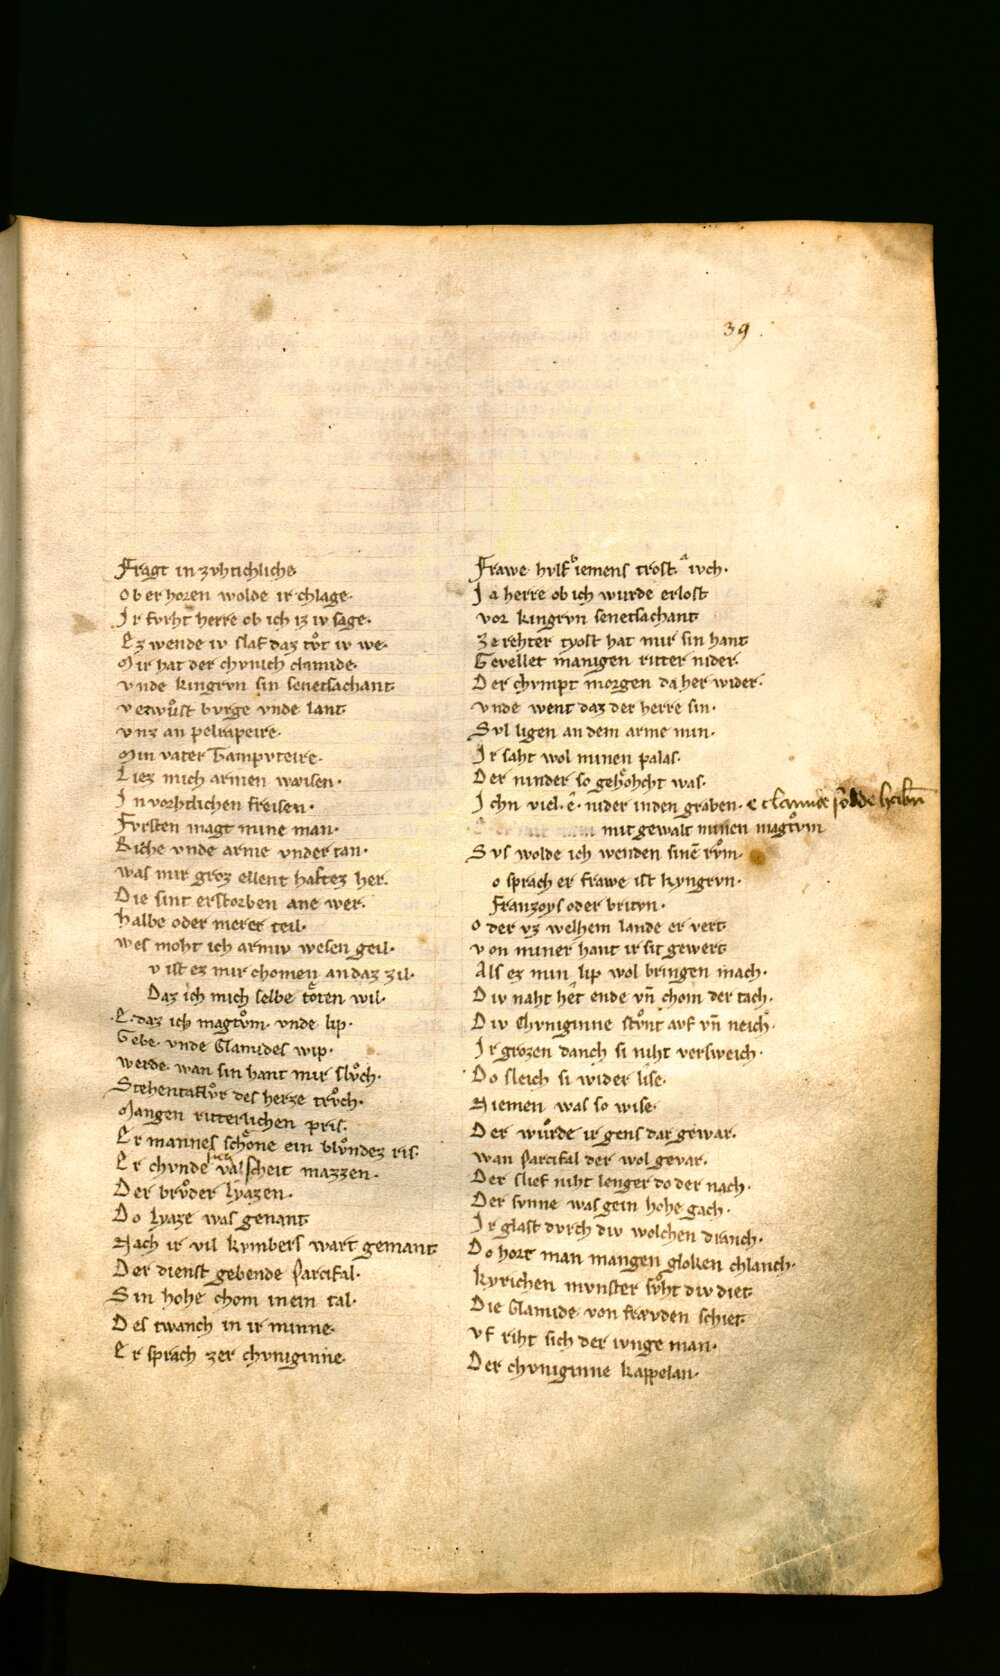 39
Fragt in zvhtichliche
Ob er horen wolde ir chlage·
Ir fvrht herre ob ich iz iv sage·
Ez wende iv slaf daz tv̊t iv we·
Mir hat der chvnich clamide·
vnde kingrvn sin senetsachant
verwů̊st bvrge vnde lant
vnz an pelrapeire·
Min vater Tampvteire·
Liez mich armen waisen·
In vorhtlichen freisen·
Fvrsten magt mine man·
Riche vnde arme vnder tan·
was mir groz ellent haftez her·
Die sint erstorben ane wer·
halbe oder merer teil·
wes moht ich armiv wesen geil·
v ist ez mir chomen an daz zil·
Daz ich mich selbe tȯten wil·
E· daz ich magtv̊m· vnde lip·
Gebe· vnde Clamides wip·
werde· wan sin hant mir slv̊ch·
Schentaflv̊r des herze trv̊ch·
Mangen ritterlichen pris·
Er mannes schone ein blv̊ndez ris·
Er chvnde valscheit mazzen·
Der brv̊der Lyazen·
Do Lyaze was genant
Nach ir vil kvmbers wart gemant
Der dienst gebende Parcifal·
Sin hohe chom in ein tal·
Des twanch in ir minne·
Er sprach zer chvniginne·
Frawe hvlf iemens trost iwch·
Ja herre ob ich wurde erlost
vor kingrvn senetsachant
Ze rehter tyost hat mir sin hant
Gevellet manigen ritter nider·
Der chvmpt morgen da her wider·
vnde went daz der herre sin·
Svl ligen an dem arme min·
Ir saht wol minen palas·
Der ninder so gehohcht was·
Ichn viel· ê· nider in den graben· e clamide
mit gewalt minen magtv̊m
Svs wolde ich wenden sinē rv̊m·
o sprach er frawe ist kyngrvn·
Franzoys oder britvn·
Oder vz welhem lande er vert
von miner hant ir sit gewert
Als ez min lip wol bringen mach·
Div naht het ende vn̄ chom der tach·
Div Chvniginne stv̊nt avf vn̄ neich·
Ir grozen danch si niht versweich·
Do sleich si wider lise·
Niemen was so wise·
Der wůrde ir gens dar gewar·
wan Parcifal der wol gevar·
Der slief niht lenger do der nach·
Der svnne was gein hohe gach·
Ir glast dvrch div wolchen dranch·
Do hort man mangen gloken chlanch·
kyrichen mvnster sv̊ht div diet
Die Clamide von fravden schiet
vf riht sich der ivnge man·
Der chvniginne kappelan·